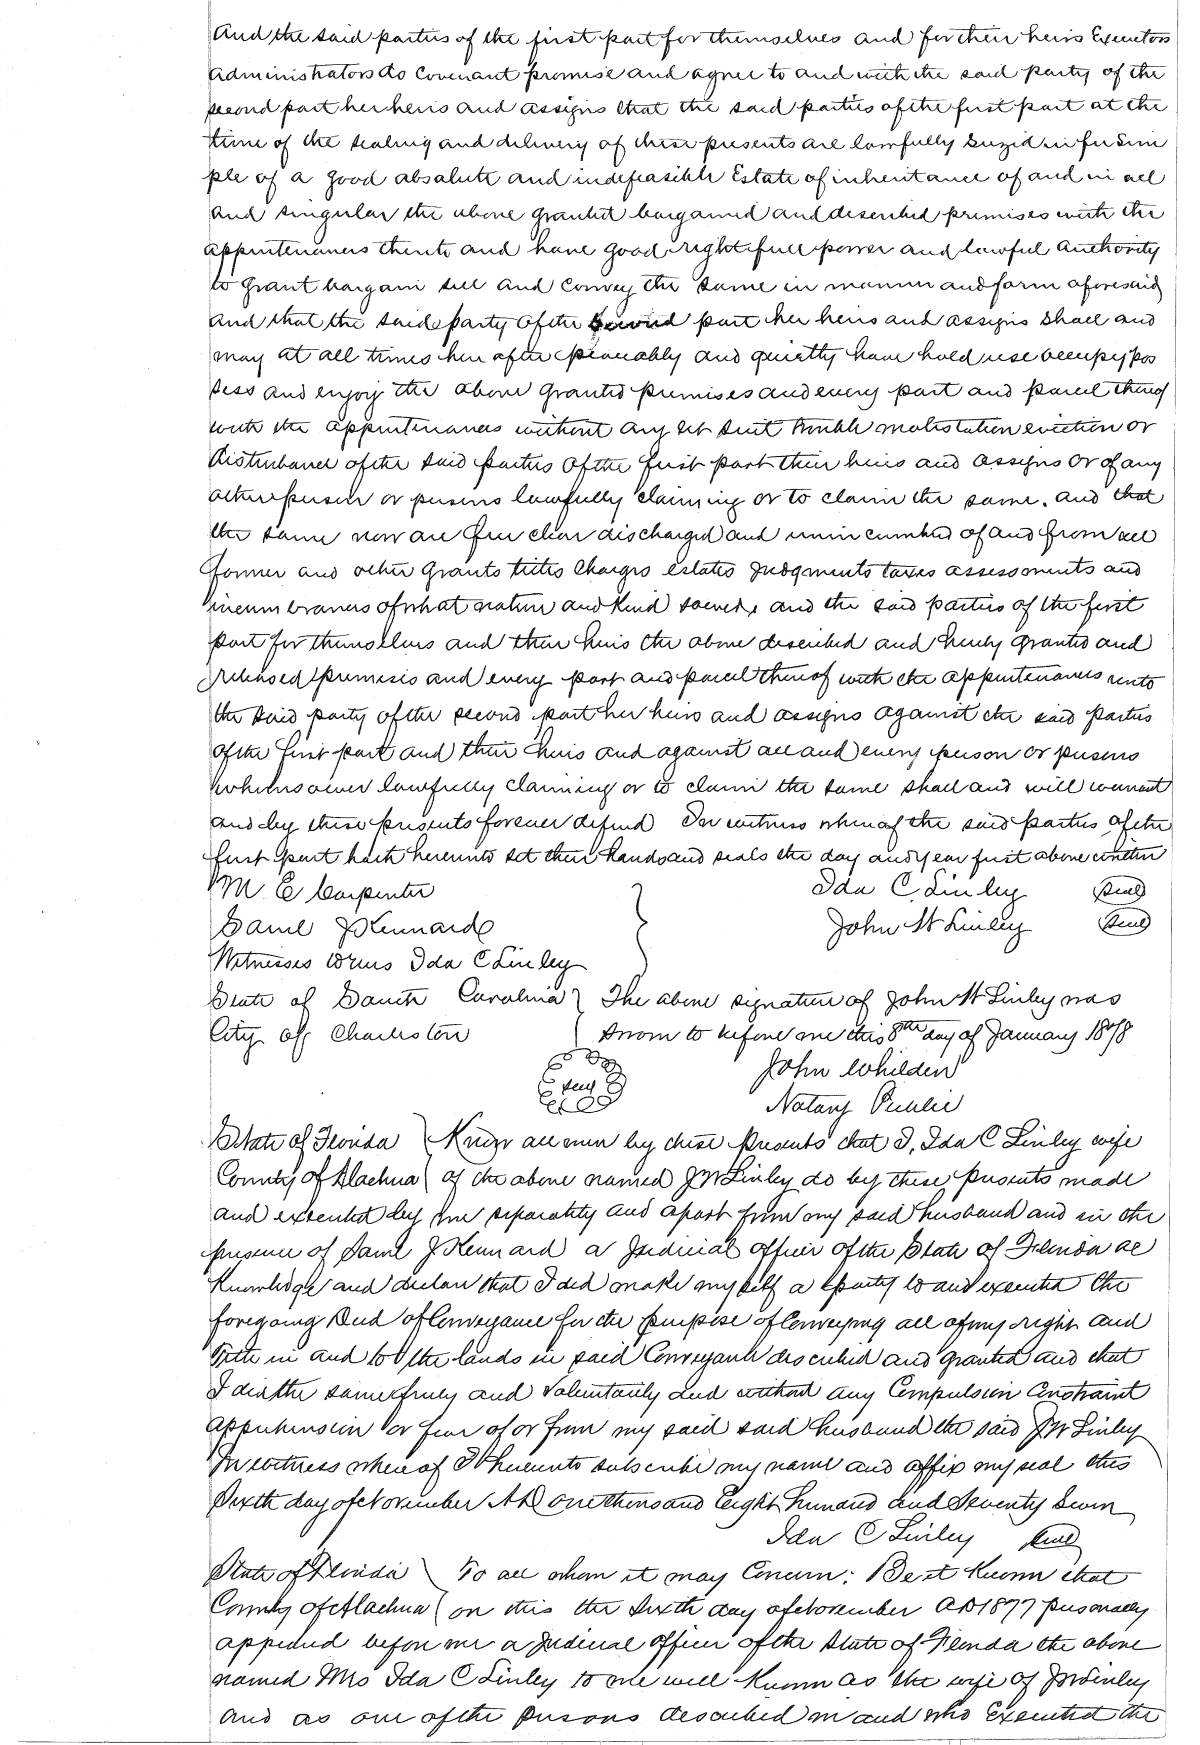 And the said parties of the first part for themselves and for their heirs Executors
administrators do Covenant promise and agree to and with the said party of the
second part her heirs and assigns that the said parties of the first part at the
time of the sealing and delivery of these presents are lawfully Siezed in fee Sim
ple of a good absolute and indefeasible Estate of inheritance of and in all
and singular the above granted bargained and described premises with the
appurtenances thereto and have good right full power and lawful authority
to grant bargain sell and convey the same in manner and form aforesaid
and that the said party of the second part her heirs and assigns Shall and
may at all times here after peaceably and quietly have hold use occupy pos
sess and enjoy the above granted premises and every part and parcel thereof
with the appurtenances without any let suit trouble molestation eviction or
disturbance of the said parties of the first part their heirs and assigns or of any
other person or persons lawfully claiming or to claim the same. and that
the same now are free clear discharged and unincumbered of and from all
former and other grants titles charges estates Judgments taxes assessments and
incumbrances of what nature and kind soever, and the said parties of the first
part for themselves and their heirs the above described and hereby granted and
released premises and every part and parcel thereof with the appurtenances unto
the said party of the second part her heirs and assigns against the said parties
of the first part and their heirs and against all and every person or persons
whomsoever lawfully claiming or to claim the same shall and will warrant
and by these presents forever defend In witness whereof the said parties of the
first part hath hereunto set their hands and seals the day and year first above written
M E Carpenter Ida C. Linley Seal
Saml J Kennard John W Linley Seal
Witnesses to Mrs Ida C Linley
State of South Carolina The above signature of John W Linley was
City of Charleston sworn to before me this 8th day of January 1878
seal John Whilden
Notary Public
State of Florida Know all men by these presents that I, Ida C Linley wife
County of Alachua of the above named J W Linley do by these presents made
and executed by me separately and apart from my said husband and in the
presence of Saml J Kennard a Judicial officer of the State of Florida ac
knowledge and declare that I did make myself a party to and executed the
foregoing Deed of Conveyance for the purpose of Conveying all of my right and
title in and to the lands in said Conveyance described and granted and that
I did the same freely and voluntarily and without any Compulsion Constraint
apprehension or fear of or from my said said husband the said J W Linley
In witness whereof I hereunto subscribe my name and affix my seal this
Sixth day of November AD one thousand Eight hundred and Seventy Seven
Ida C Linley Seal
State of Florida To all whom it may Concern: Be it Known that
County of Alachua on this the Sixth day of November AD 1877 personally
appeared before me a Judicial officer of the State of Florida the above
named Mrs Ida C Linley to me well Known as the wife of J W Linley
and as one of the persons described in and who Executed the